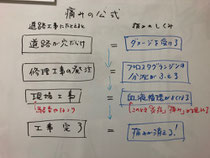 痛みの公式
道路工事にたとえると
痛みのしくみ
道路が穴だらけ
=
ダメージを受ける
修理工事の発注
=
プロスタグランジンの
分泌がふえる
現場工事
=
血液循環がよくなる
工事完了
=
痛みが消える!